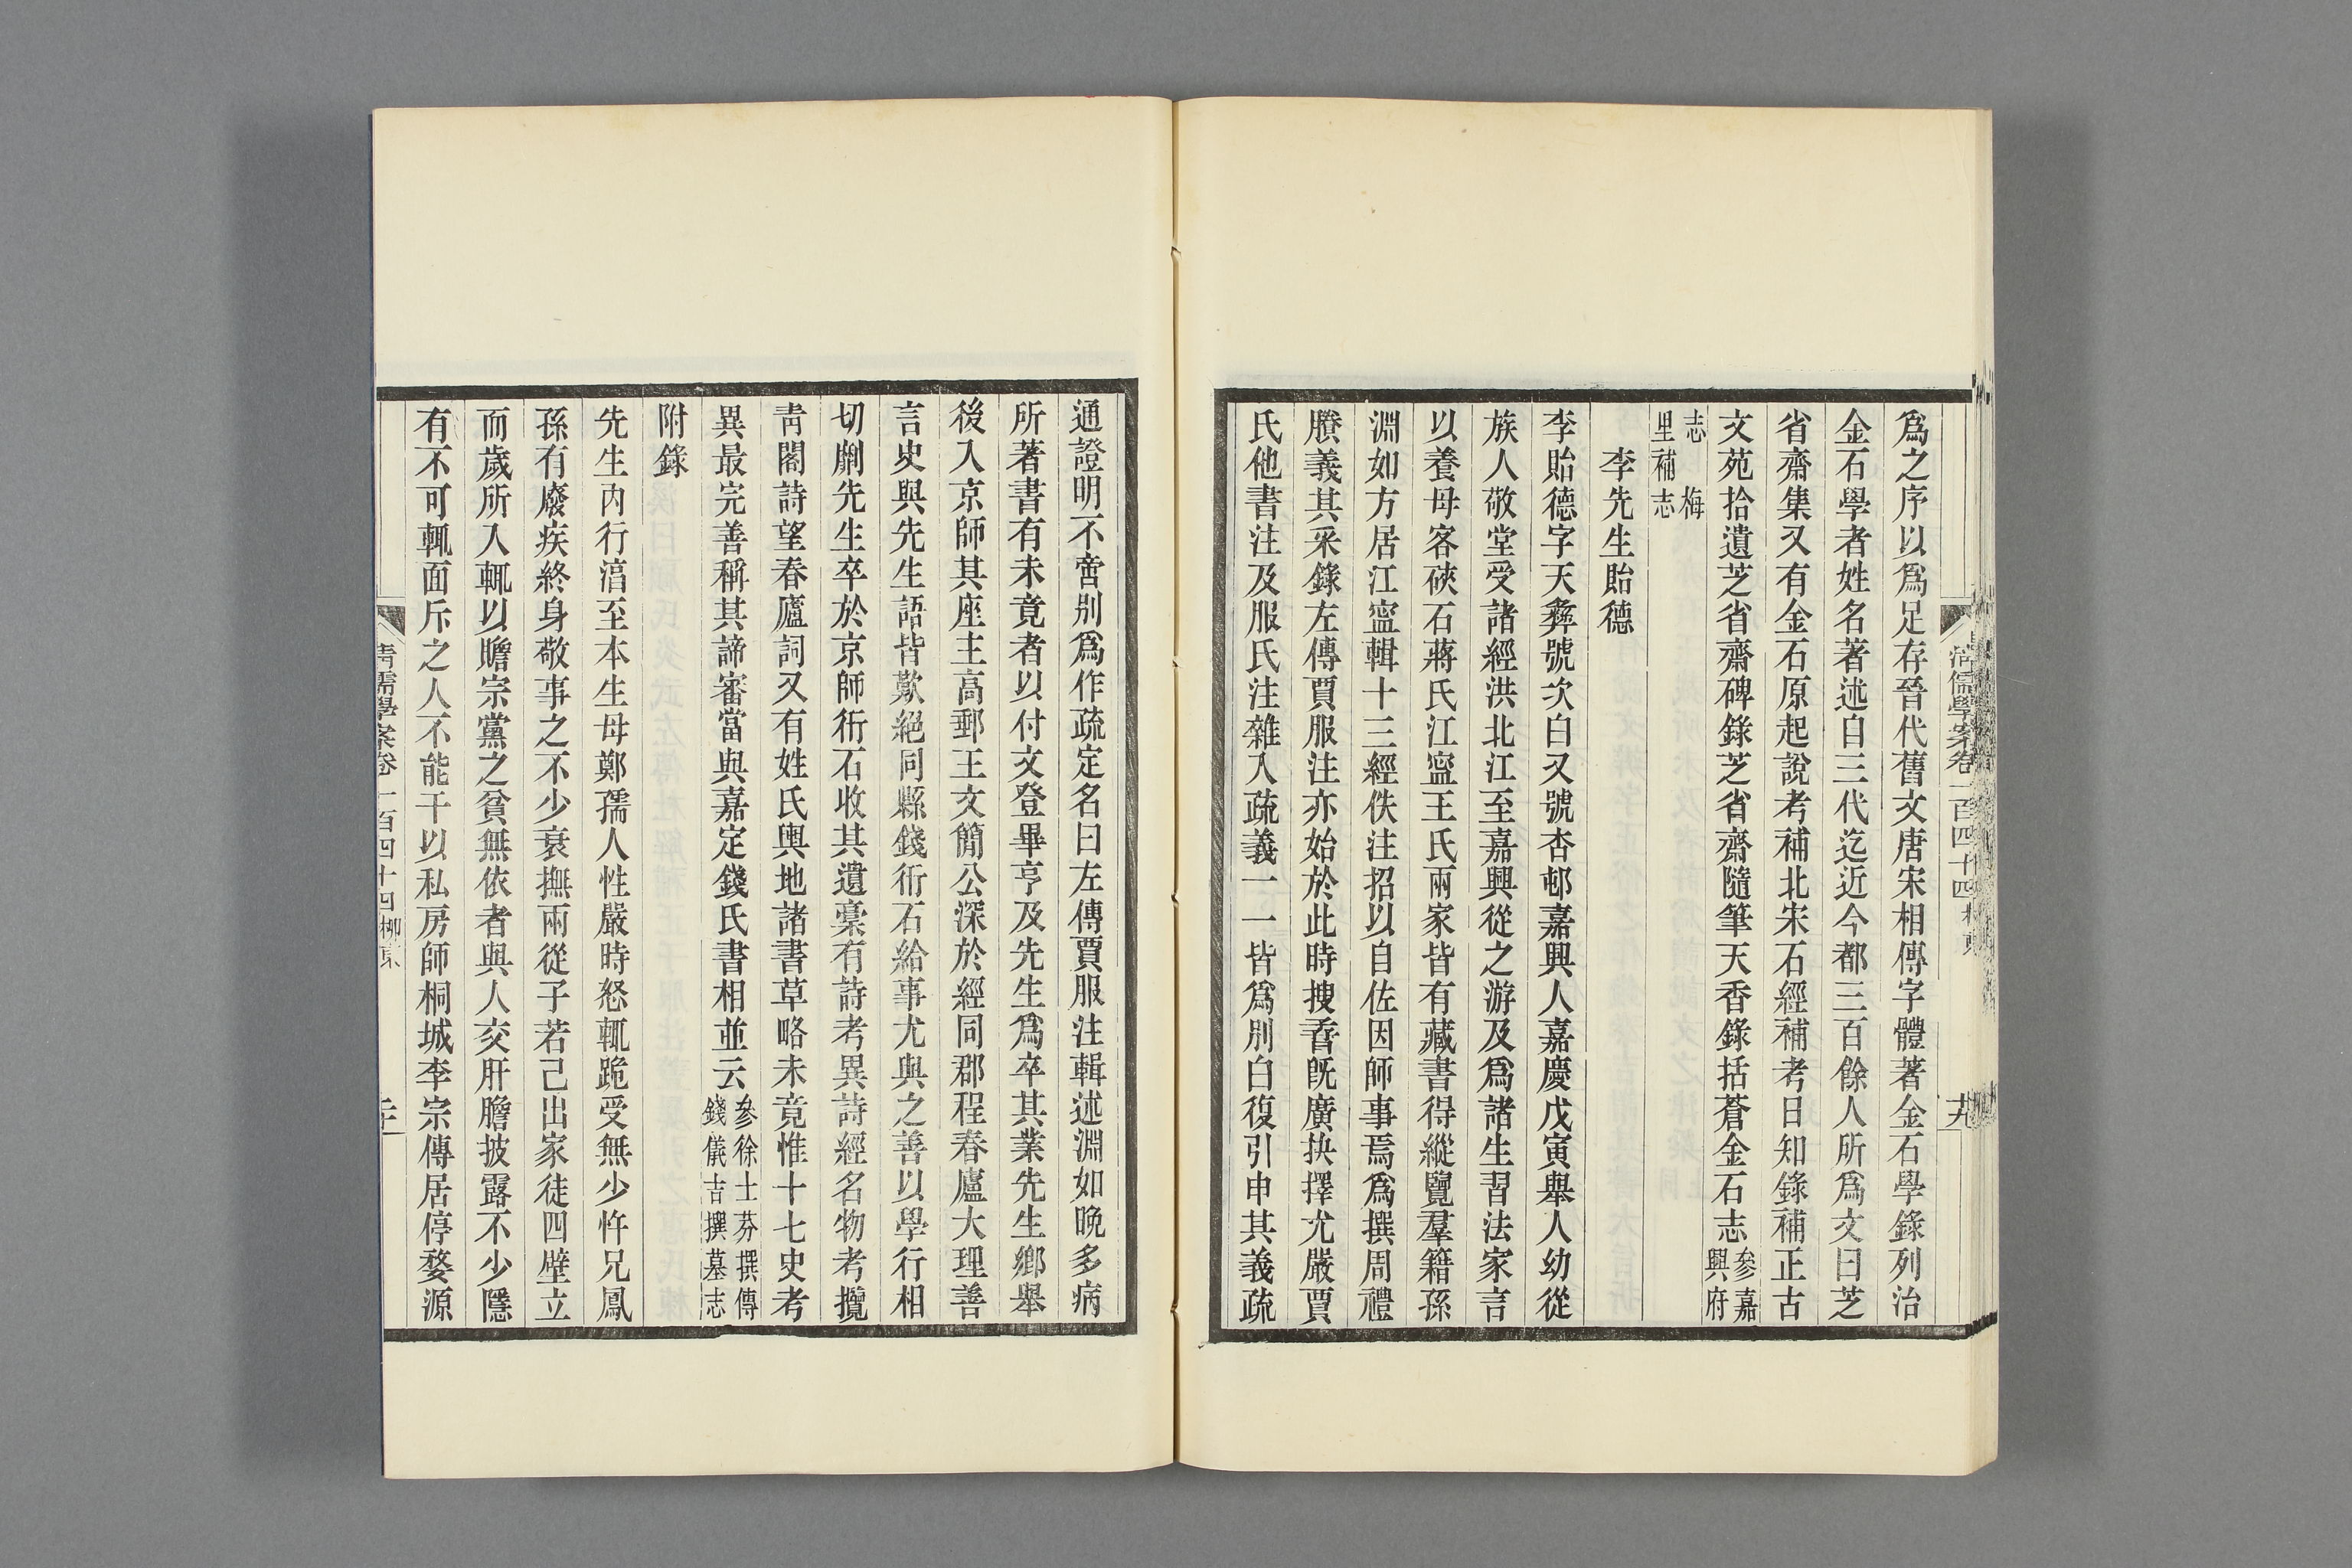 清儒學案卷一百四十四 柳東 十九
爲之序以爲足存晉代舊文唐宋相傳字體著金石學錄列治
金石學者姓名著述自三代迄近今都三百餘人所爲文曰芝
省齋集又有金石原起說考補北宋石經補考日知錄補正古
文苑拾遺芝省齋碑錄芝省齋隨筆天香錄括蒼金石志參嘉興府
志 梅里補志
李先生貽德
李貽德字天彝號次白又號杏邨嘉興人嘉慶戊寅舉人幼從
族人敬堂受諸經洪北江至嘉興從之游及爲諸生習法家言
以養母客硤石蔣氏江寍王氏兩家皆有藏書得縱覽羣籍孫
淵如方居江寍輯十三經佚注招以自佐因師事焉爲撰周禮
賸義其采錄左傳賈服注亦始於此時搜香旣廣抉擇尤嚴賈
氏他書注及服氏注雜入疏義一一皆爲別白復引申其義疏
通證明不啻別爲作疏定名曰左傳賈服注輯述淵如晚多病
所著書有未竟者以付文登畢亨及先生爲卒其業先生鄉舉
後入京師其座主高郵王文簡公深於經同郡程春廬大理善
言史與先生語皆歎絕同縣錢衎石給事尤與之善以學行相
切劘先生卒於京師衎石收其遺稾有詩考異詩經名物考攬
靑閣詩望春廬詞又有姓氏輿地諸書草略未竟惟十七史考
異最完善稱其諦審當與嘉定錢氏書相並云參徐士芬撰傳錢儀吉撰墓志
附錄
先生內行湻至本生母鄭孺人性嚴時怒輒跪受無少忤兄鳳
孫有廢疾終身敬事之不少衰撫兩從子若己出家徒四壁立
而歲所入輒以贍宗黨之貧無依者與人交肝膽披露不少隱
有不可輒面斥之人不能干以私房師桐城李宗傳居停婺源
清儒學案卷一百四十四 柳東